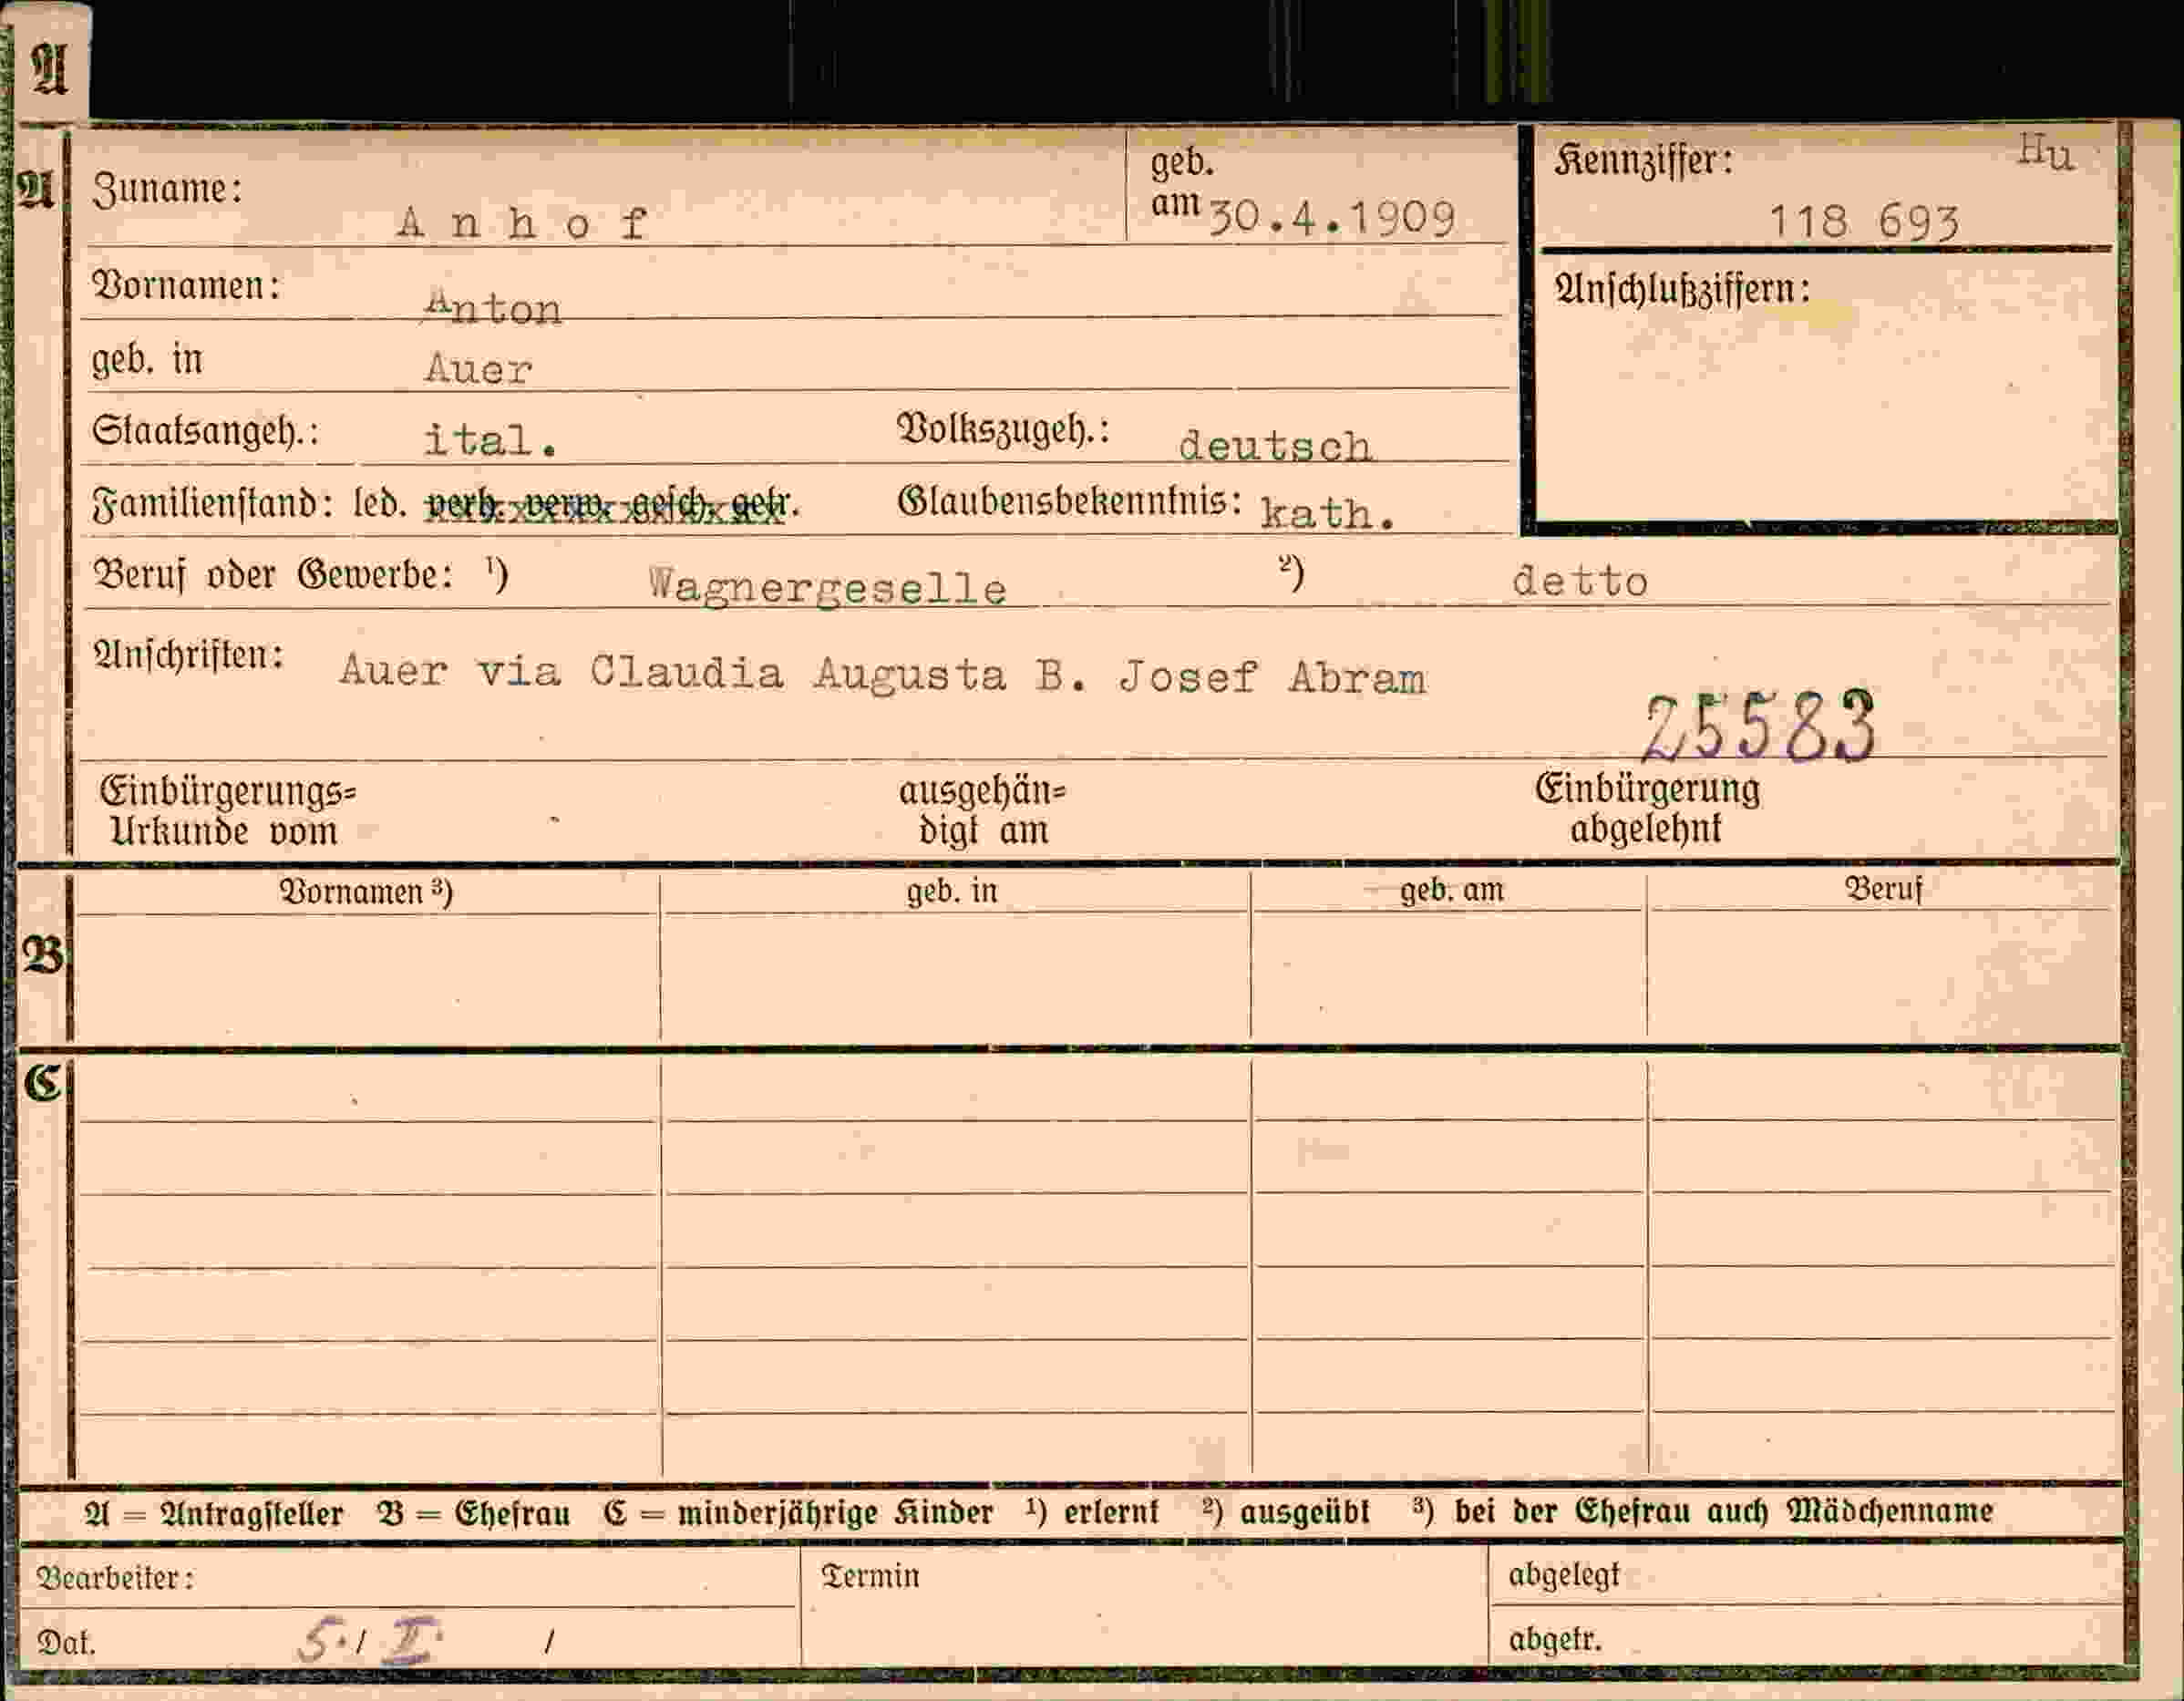 A
A Zuname: A n h o f geb. am 30.4.1909 Kennziffer: Hu
118 693
Vornamen: Anton Anschlußziffern:
geb. in Auer
Staatsangeh.: ital. Volkszugeh.: deutsch
Familienstand: led. verh. verw. gesch. getr. Glaubensbekenntnis: kath.
Beruf oder Gewerbe: ¹) Wagnergeselle ²) detto
Anschriften: Auer via Claudia Augusta B. Josef Abram
25583
Einbürgerungs= ausgehän= Einbürgerung
Urkunde vom digt am abgelehnt
Vornamen ³) geb. in geb. am Beruf
B
C
A = Antragsteller B = Ehefrau C = minderjährige Kinder ¹) erlernt ²) ausgeübt ³) bei der Ehefrau auch Mädchenname
Bearbeiter: Termin abgelegt
Dat. 5. / I. / abgetr.